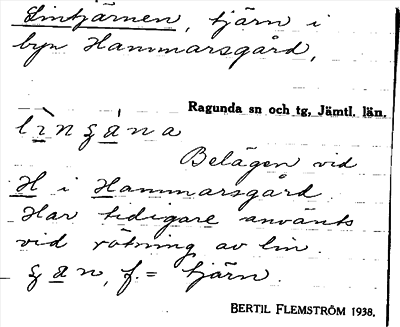 Lintjärnen, tjärn i
byn Hammarsgård,
Ragunda sn och tg, Jämtl. län.
Belägen vid
H i Hammarsgård.
Har tidigare använts
vid rötning av lin.
f. = tjärn.
BERTIL FLEMSTRÖM 1938.